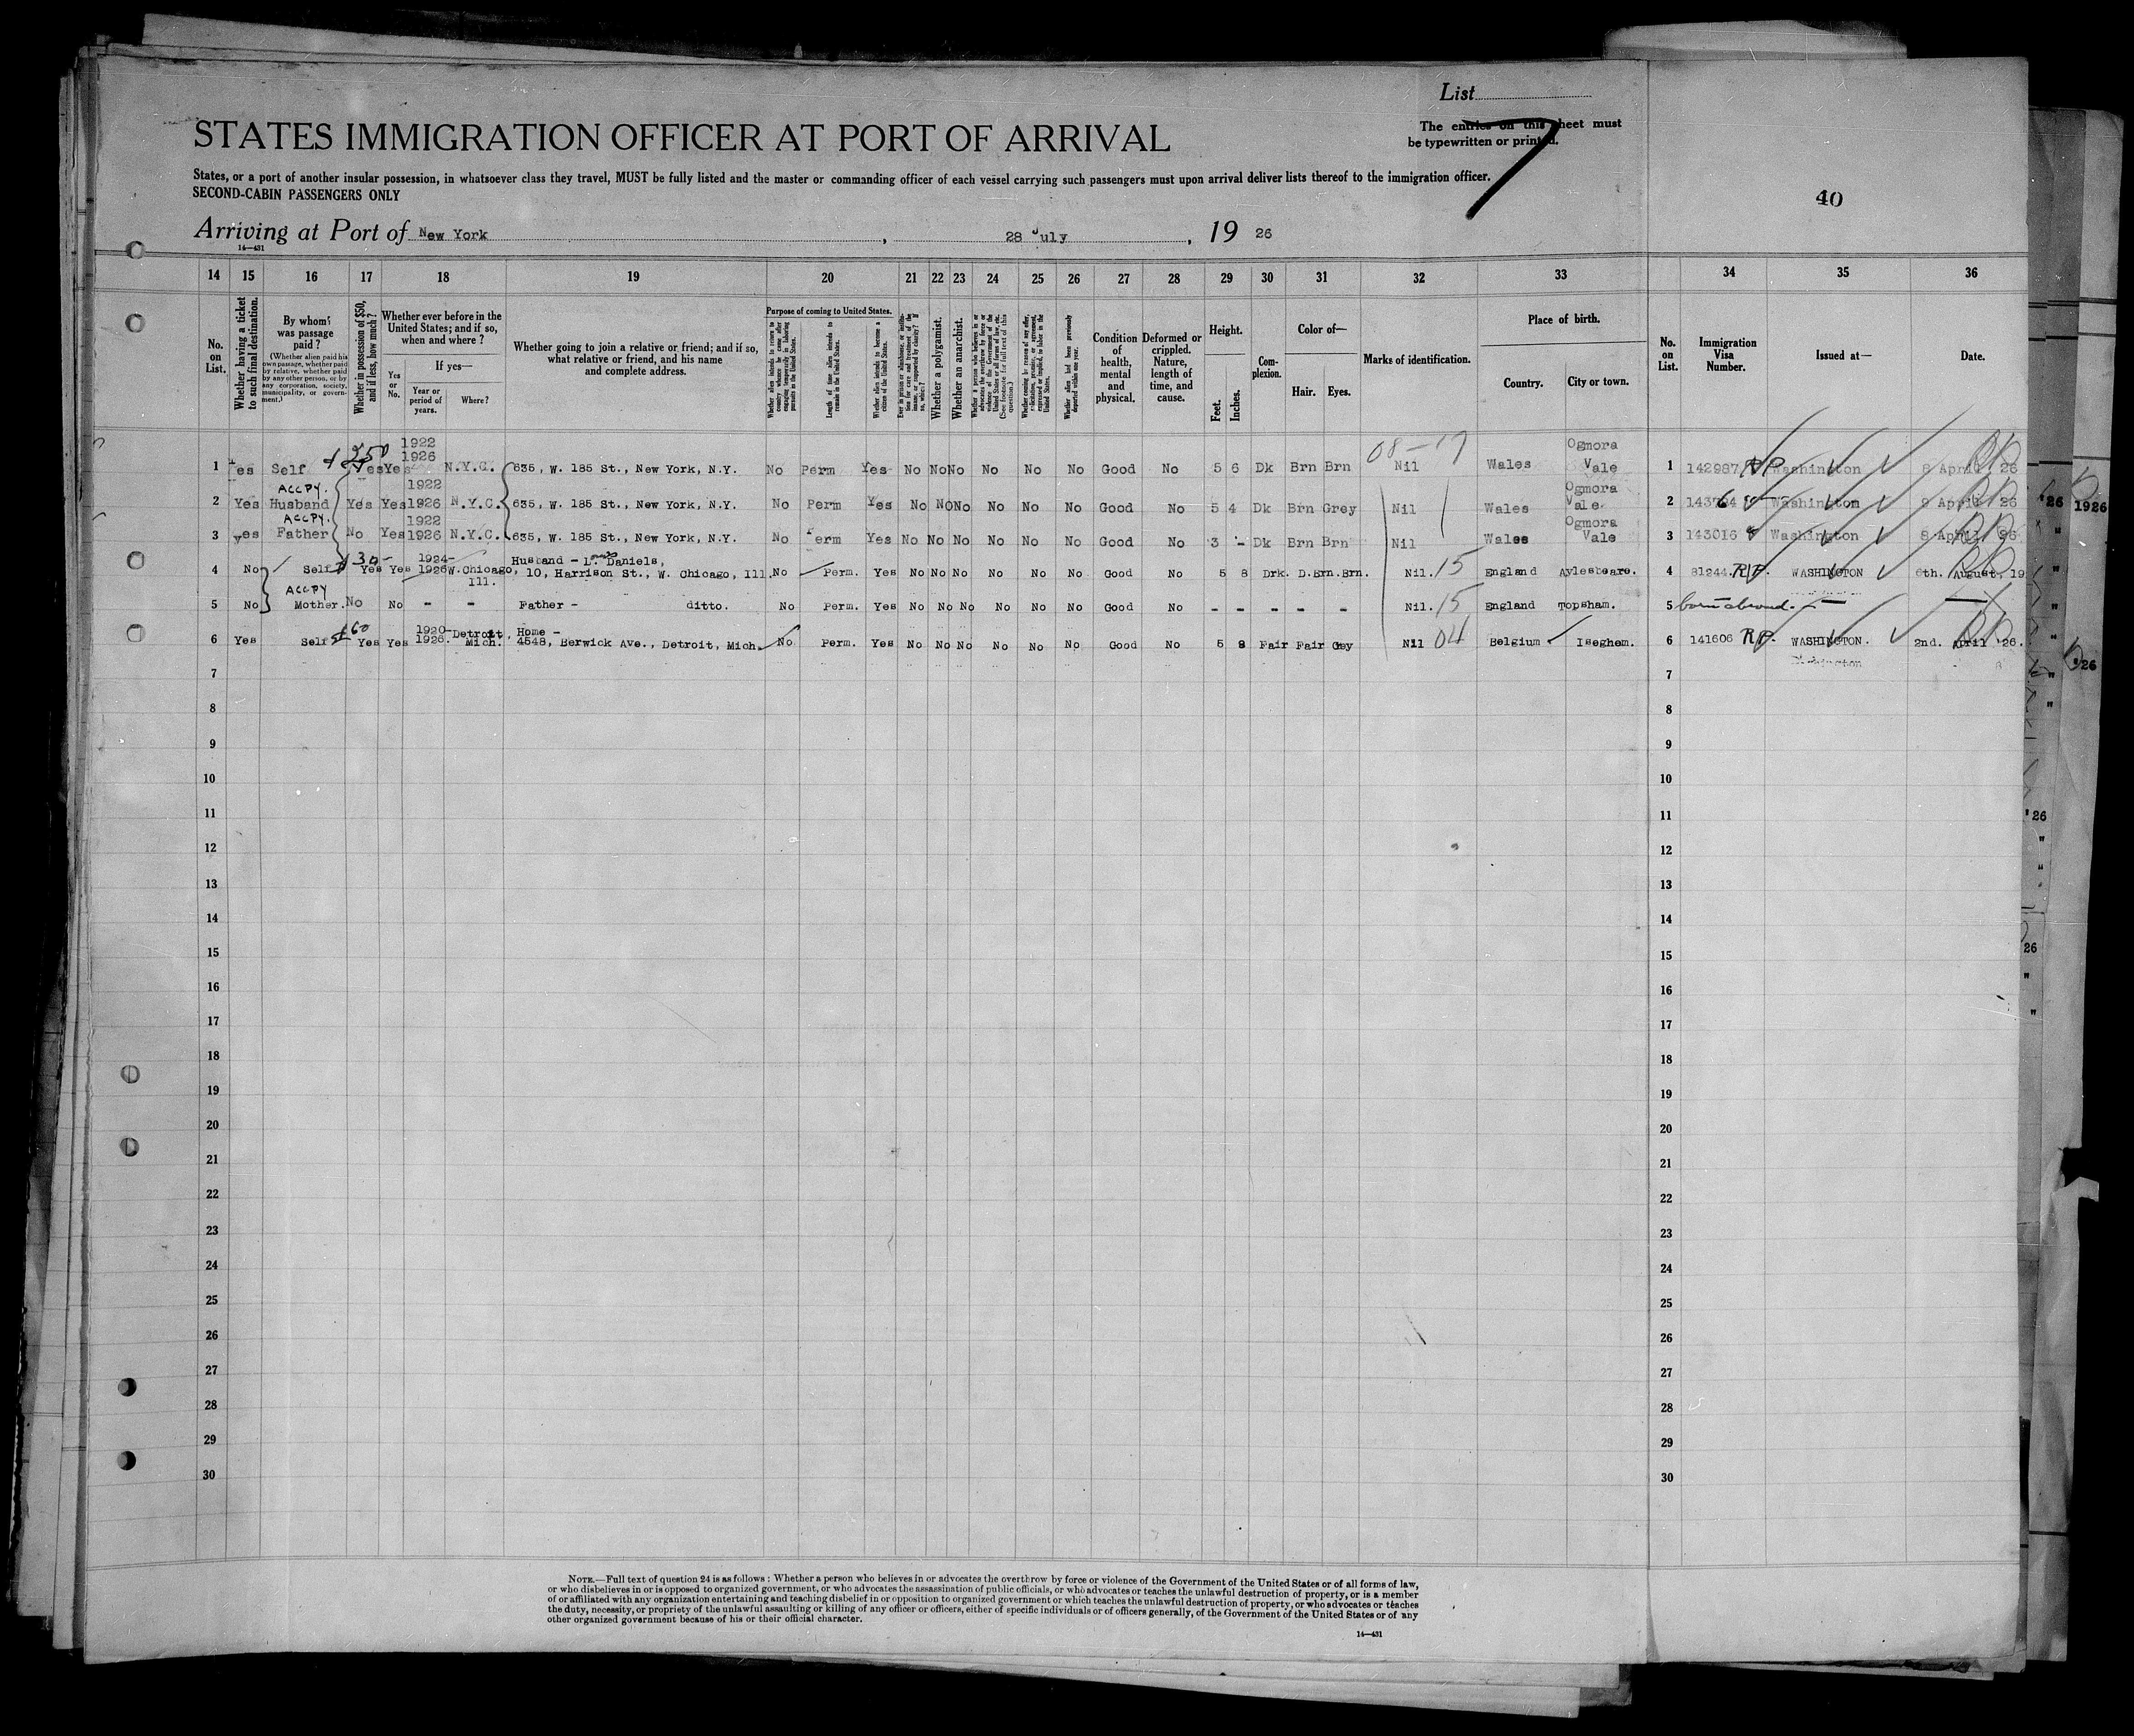 List
The entries on this sheet must
be typewritten or printed.
7
STATES IMMIGRATION OFFICER AT PORT OF ARRIVAL
States, or a port of another insular possession, in whatsoever class they travel, MUST be fully listed and the master or commanding officer of each vessel carrying such passengers must upon arrival deliver lists thereof to the immigration officer.
SECOND-CABIN PASSENGERS ONLY
40
Arriving at Port of New York , 28 July , 19 26
14—431
14 15 16 17 18 19 20 21 22 23 24 25 26 27 28 29 30 31 32 33 34 35 36
No. on List.
Whether having a ticket to such final destination.
By whom was passage paid?
(Whether alien paid his own passage, whether paid by relative, whether paid by any other person, or by any corporation, society, municipality, or government.)
Whether in possession of $50, and if less, how much?
Whether ever before in the United States; and if so, when and where?
Yes or No.
If yes—
Year or period of years.
Where?
Whether going to join a relative or friend; and if so, what relative or friend, and his name and complete address.
Purpose of coming to United States.
Length of time alien intends to remain in the United States.
Whether alien intends to become a citizen of the United States.
Whether a polygamist.
Whether an anarchist.
Condition of health, mental and physical.
Deformed or crippled. Nature, length of time, and cause.
Height.
Feet.
Inches.
Complexion.
Color of—
Hair.
Eyes.
Marks of identification.
Place of birth.
Country.
City or town.
No. on List.
Immigration Visa Number.
Issued at—
Date.
08-17
1 Yes Self $250 Yes Yes 1922 1926 N.Y.C. 635, W. 185 St., New York, N.Y. No Perm Yes No No No No No No Good No 5 6 Dk Brn Brn Nil Wales Ogmora Vale 1 142987 RP Washington 8 April 26
2 Yes ACCPY. Husband Yes Yes 1922 1926 N.Y.C. 635, W. 185 St., New York, N.Y. No Perm Yes No No No No No No Good No 5 4 Dk Brn Grey Nil Wales Ogmora Vale 2 Washington 9 April 26
3 yes ACCPY. Father No Yes 1922 1926 N.Y.C. 635, W. 185 St., New York, N.Y. No Perm Yes No No No No No No Good No 3 - Dk Brn Brn Nil Wales Ogmora Vale 3 143016 Washington 8 April 26
4 No Self $30- Yes Yes 1924- 1926 W.Chicago, Ill. Husband - L. Daniels, 10, Harrison St., W. Chicago, Ill. No Perm. Yes No No No No No No Good No 5 8 Drk. D.Brn. Brn. Nil. 15 England Aylesbeare. 4 81244. RP. WASHINGTON 6th. August, 19
5 No ACCPY Mother. No No - - Father - ditto. No Perm. Yes No No No No No No Good No - - - - - Nil. 15 England Topsham. 5 born abroad. —
6 Yes Self $60 Yes Yes 1920- 1926. Detroit, Mich. Home - 4548, Berwick Ave., Detroit, Mich. No Perm. Yes No No No No No No Good No 5 8 Fair Fair Gey Nil 04 Belgium Iseghem. 6 141606 RP. WASHINGTON. 2nd. April '26.
7 7
8 8
9 9
10 10
11 11
12 12
13 13
14 14
15 15
16 16
17 17
18 18
19 19
20 20
21 21
22 22
23 23
24 24
25 25
26 26
27 27
28 28
29 29
30 30
'26 1926
'26
'26
26
NOTE.—Full text of question 24 is as follows: Whether a person who believes in or advocates the overthrow by force or violence of the Government of the United States or of all forms of law,
or who disbelieves in or is opposed to organized government, or who advocates the assassination of public officials, or who advocates or teaches the unlawful destruction of property, or is a member
of or affiliated with any organization entertaining and teaching disbelief in or opposition to organized government or which teaches the unlawful destruction of property, or who advocates or teaches
the duty, necessity, or propriety of the unlawful assaulting or killing of any officer or officers, either of specific individuals or of officers generally, of the Government of the United States or of any
other organized government because of his or their official character.
14—431